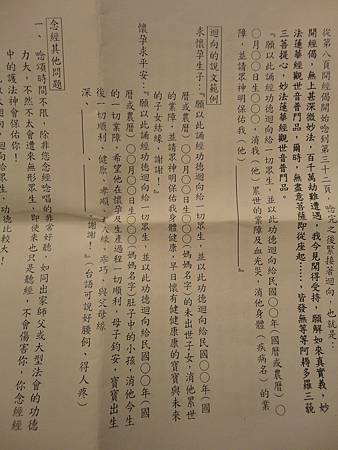 從第八頁開經偈開始唸到第三十二頁。唸完之後緊接著迴向，也就是：
開經偈，無上甚深微妙法，百千萬劫難遭遇，我今見聞得受持，願解如來真實義，妙
法蓮華經觀世音普門品，爾時，無盡意菩薩即從座起……，皆發無等等阿耨多羅三藐
三菩提心，妙法蓮華經觀世音普門品。
『願以此誦經功德迴向給一切眾生，並以此功德迴向給民國○○年（國曆或農曆）○
○月○○日生○○○，消我（他）累世的業障及血光災，消他身體（疾病名）的業
障，並請眾神明保佑我（他）
迴向的說文範例
求懷孕生子：『願以此誦經功德迴向給一切眾生，並以此功德迴向給民國○○年（國
曆或農曆）○○月○○日生○○○（媽媽名字）的未出世子女，消他累世
的業障，並請眾神明保佑我身體健康，早日懷有健健康康的寶寶與未來
的子女結緣，謝謝！』
懷孕求平安：『願以此誦經功德迴向給一切眾生，並以此功德迴向給民國○○年（國
曆或農曆）○○月○○日生○○○（媽媽名字）肚子中的小孩，消他今生
的一切業障，希望他在懷孕及生產過程一切順利，母子鈞安，寶寶出生
後一切順利，健康、孝順、人緣、乖巧，與父母緣
深、……謝謝！』（台語可說好腰飼、得人疼）
念經其他問題
一、唸頌時間不限，除非您念經唸唱的非常好聽，如同出家師父或大型法會的功德
力大，不然不太會遭來無形眾生，即使來也只是聽經，不會傷害你，你念經
中的護法神會保佑你！
迴向給眾生，功德比較大！